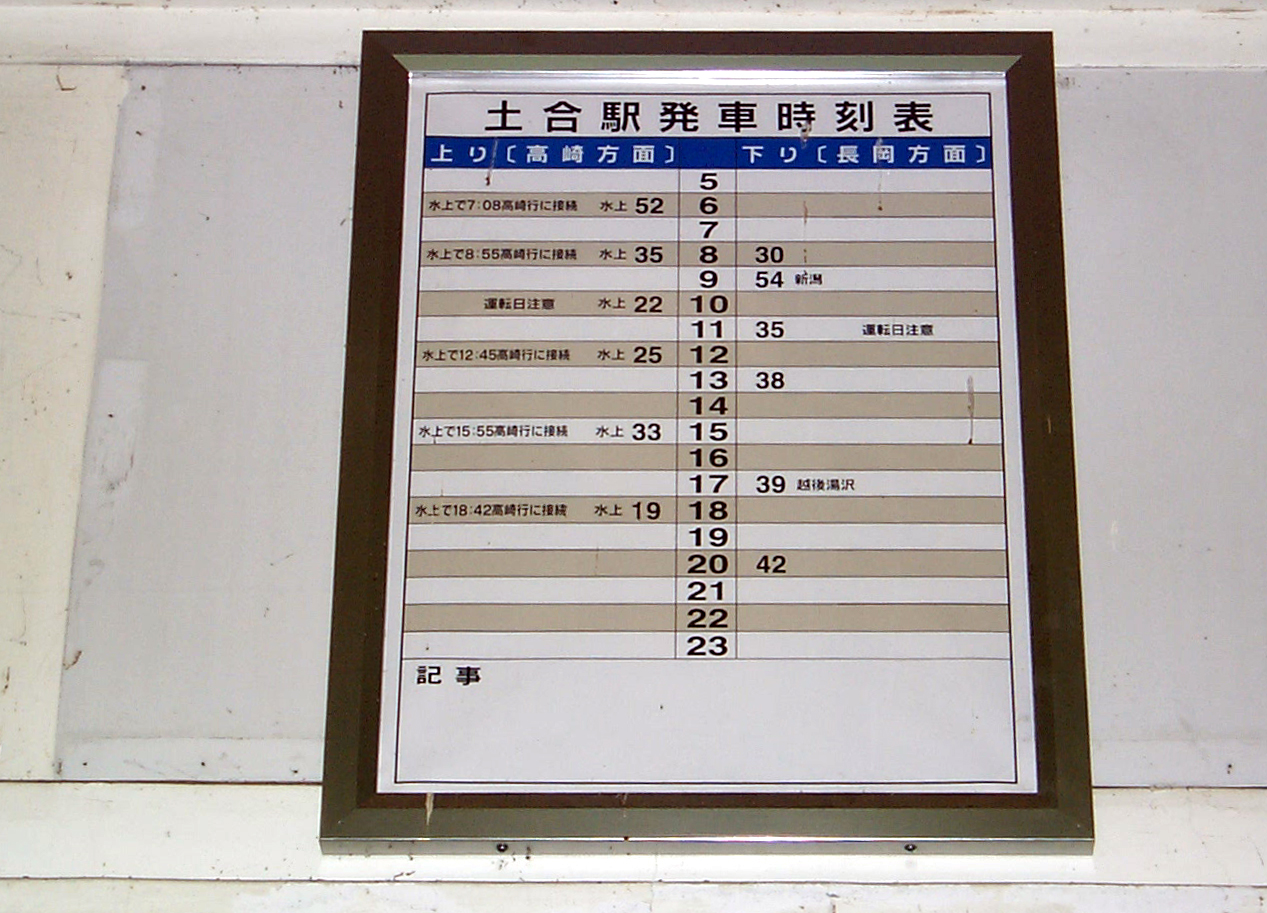 土合駅発車時刻表
上り〔高崎方面〕 下り〔長岡方面〕
5
水上で7:08高崎行に接続 水上 52 6
7
水上で8:55高崎行に接続 水上 35 8 30
9 54 新潟
運転日注意 水上 22 10
11 35 運転日注意
水上で12:45高崎行に接続 水上 25 12
13 38
14
水上で15:55高崎行に接続 水上 33 15
16
17 39 越後湯沢
水上で18:42高崎行に接続 水上 19 18
19
20 42
21
22
23
記事